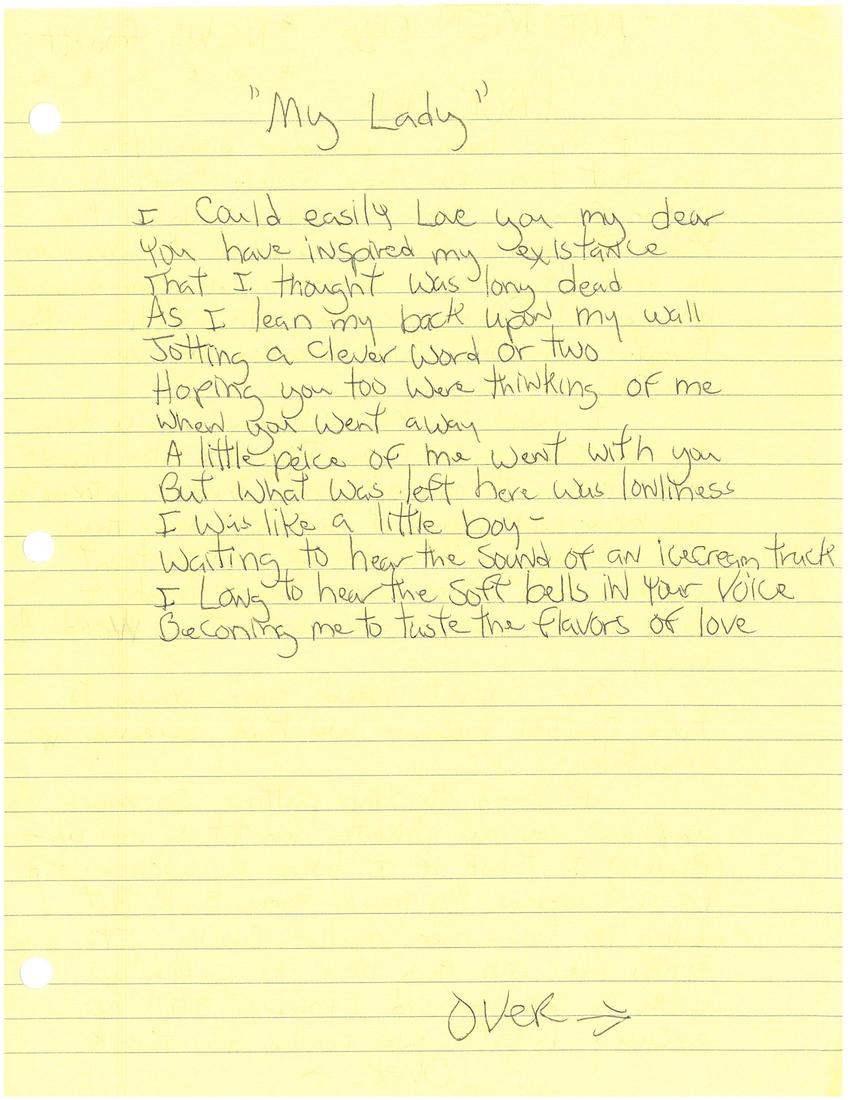 "My Lady"
I Could easily Love you my dear
You have inspired my existance
That I thought was long dead
As I lean my back upon my wall
Jotting a clever word or two
Hoping you too were thinking of me
When you went away
A little peice of me went with you
But what was left here was lonliness
I was like a little boy-
Waiting to hear the sound of an icecream truck
I Long to hear the soft bells in your voice
Becoming me to taste the flavors of love
OVER →